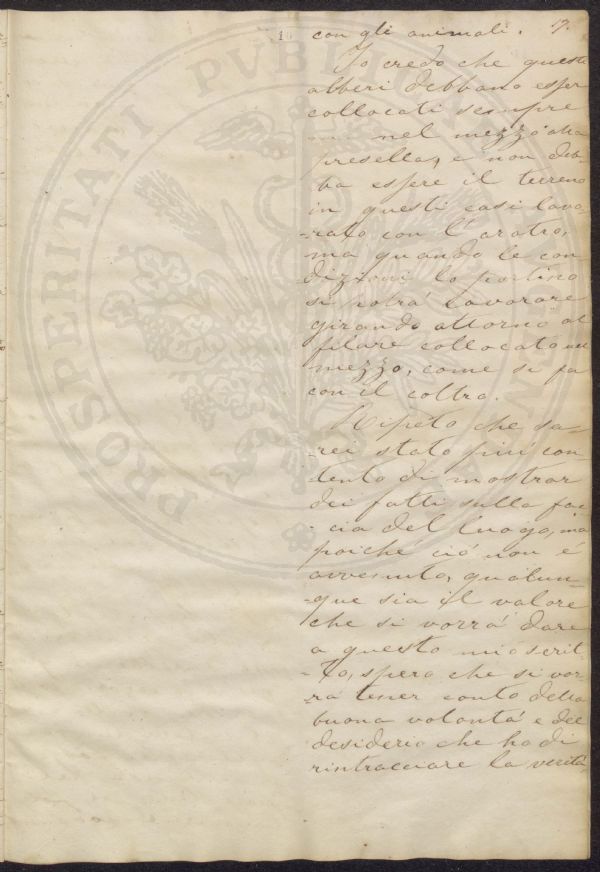 17.
con gli animali.
Io credo che questi
alberi debbano esser
collocati sempre
nel mezzo alla
presella, e non deb-
ba essere il terreno
in questi casi lavo-
-rato con l'aratro,
ma quando le con
dizioni lo portino
si potrà lavorare
girando attorno al
filare collocato nel
mezzo, come si fa
con il coltro.
Ripeto che sa-
rei stato più con-
tento di mostrar
dei fatti sulla fac
-cia del luogo, ma
poiché ciò non é
avvenuto, qualun-
-que sia il valore
che si vorrà dare
a questo mio scrit-
-to, spero che si vor-
-rà tener conto della
buona volontà e del
desiderio che ho di
rintracciare la verità,
PROSPERITATI PVBLICAE